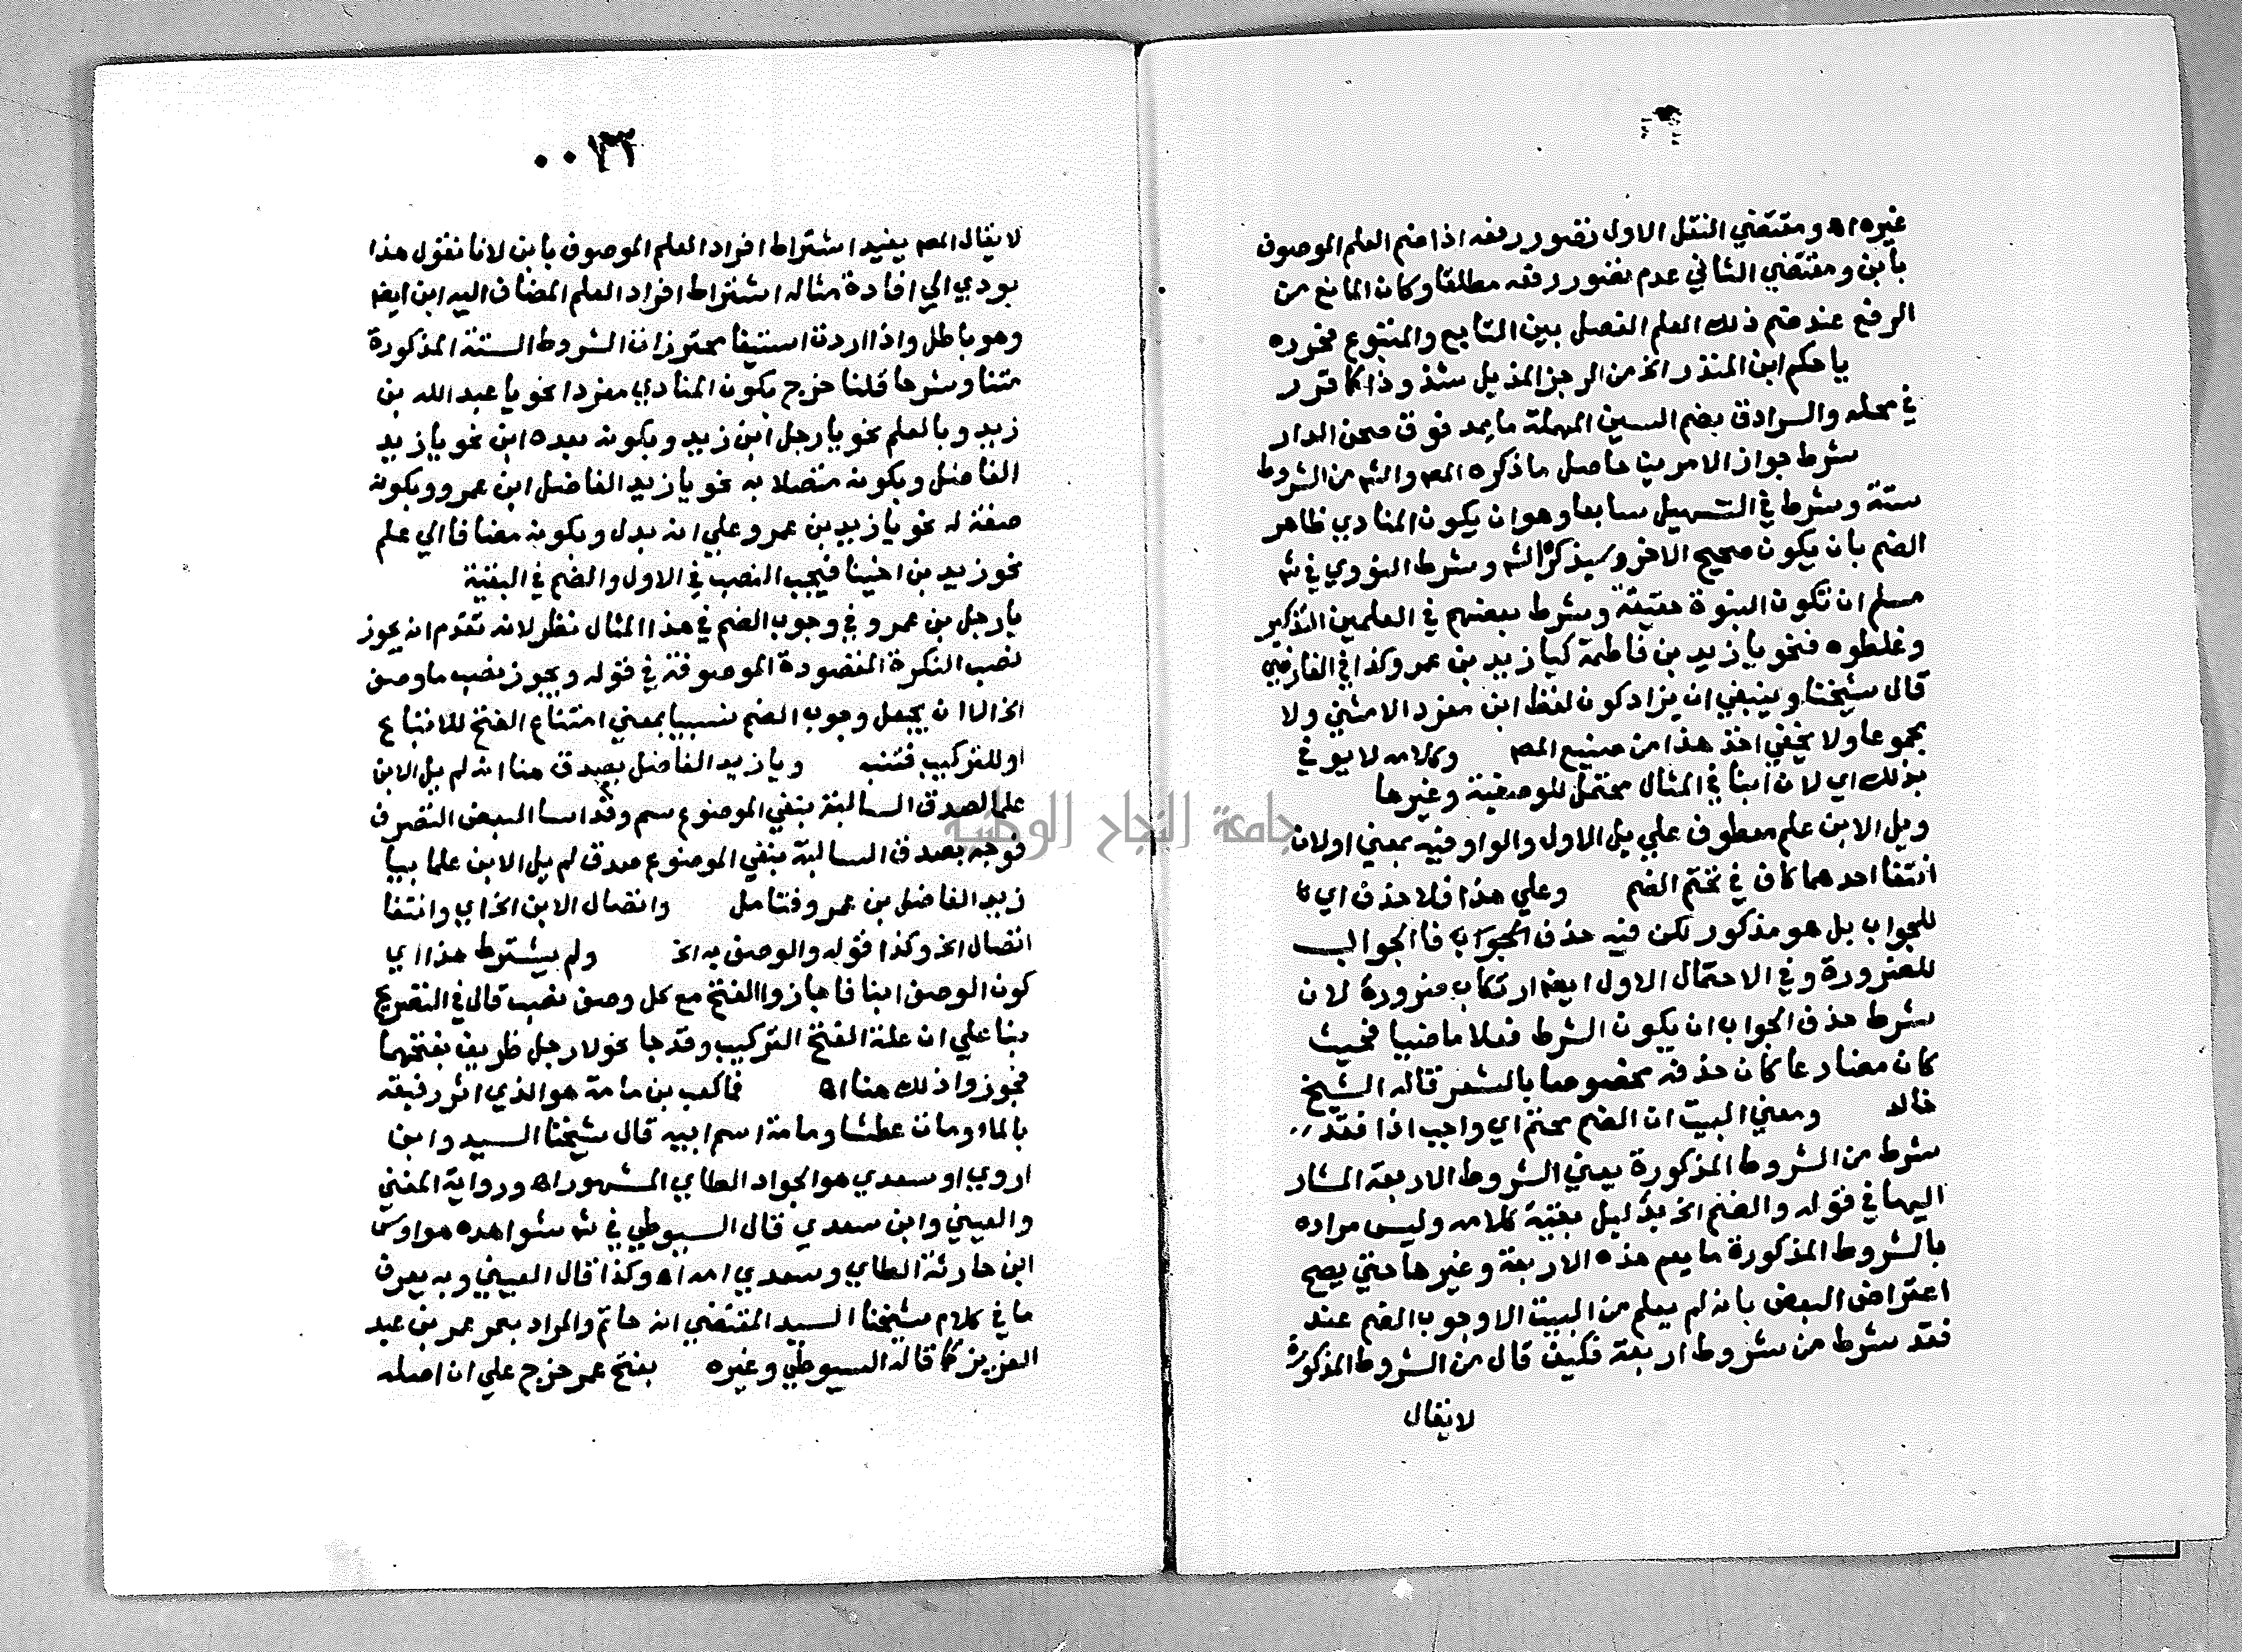 غيره اه ومقتضي النقل الاول تصور رفعه اذا ضم العلم الموصوف
بابن ومقتضي الثاني عدم تصور رفعه مطلقا وكان المانع من
الرفع عند ضم ذلك العلم الفصل بين التابع والمتبوع فحرره
يا حكم ابن المنذر الخ من الرجز المذيل شذوذا كا قرر
في محله والسرادق بضم السين المهملة ما يمد فوق صحن الدار
شرط جواز الامرين حاصل ما ذكره المص والشم من الشروط
ستة وشرط في التسهيل سابعا وهو ان يكون المنادي ظاهر
الضم بان يكون صحيح الاخر وسيذكره الشم وشرط النووي في شم
مسلم ان تكون البنوة حقيقة وشرط بعضهم في العلمين التذكير
وغلطوه فنحو يا زيد بن فاطمة كيا زيد بن عمرو كذا في الفارضي
قال شيخنا وينبغي ان يزاد كون لفظ ابن مفردا لامثني ولا
مجموعا ولا يخفي اخذ هذا من صنيع المص وكلامه لا يوفي
بذلك اي لان ابنا في المثال محتمل للوصفية وغيرها
ويل الابن علم معطوف علي يل الاول والواو فيه بمعني او لان
انتفا احدهما كاف في تحتم الضم وعلي هذا فلا حذف اي
للجواب بل هو مذكور لكن فيه حذف الجواب فا الجواب
للضرورة وفي الاحتمال الاول ايضا ارتكاب ضرورة لان
شرط حذف الجواب ان يكون الشرط فعلا ماضيا فحيث
كان مضارعا كان حذفه مخصوصا بالشعر قاله الشيخ
خالد ومعني البيت ان الضم محتم اي واجب اذا فقد
شرط من الشروط المذكورة يعني الشروط الاربعة المشار
اليها في قوله والضم الخ بدليل بقية كلامه وليس مراده
بالشروط المذكورة ما يعم هذه الاربعة وغيرها حتي يصح
اعتراض البعض بانه لم يعلم من البيت الا وجوب الضم عند
فقد شرط من شروط اربعة فكيف قال من الشروط المذكورة
لا يقال
٠٠١٣٢
لا يقال المص يفيد اشتراط افراد العلم الموصوف بابن لانا نقول هذا
يودي الي افادة مثاله اشتراط افراد العلم المضاف اليه ابن ايضا
وهو باطل واذا اردت استيفا محترزات الشروط الستة المذكورة
متنا وشرحا قلنا خرج بكون المنادي مفردا نحو يا عبد الله بن
زيد وبالعلم نحو يا رجل ابن زيد وبكونه بعده ابن نحو يا زيد
الفاضل وبكونه متصلا به نحو يا زيد الفاضل ابن عمرو وبكونه
صفة له نحو يا زيد بن عمرو علي انه بدل وبكونه مضافا الي علم
نحو زيد بن اخينا فيجب النصب في الاول والضم في البقية
يا رجل بن عمرو في وجوب الضم في هذا المثال نظر لانه تقدم انه يجوز
نصب النكرة المقصودة الموصوفة في قوله ويجوز نصب ما وصف
الخ الا ان يجعل وجوب الضم نسبيا بمعني امتناع الفتح للاتباع
او للتركيب فتنبه ويا زيد الفاضل يصدق هنا انه لم يل الابن
علما لصدق السالبة بنفي الموضوع سم وقد اسا البعض التصرف
فوجه بصدق السالبة بنفي الموضوع صدق لم يل الابن علما بيا
زيد الفاضل بن عمرو فتامل واتصال الابن الخ اي وانتفا
اتصال الخ وكذا قوله والوصف به الخ ولم يشترط هذا اي
كون الوصف ابنا فاجازوا الفتح مع كل وصف نصب قال في التصريح
بنا علي ان علة الفتح التركيب وقد جا نحو لا رجل ظريف بفتحهما
فجوزوا ذلك هنا اه فما كعب بن مامة هو الذي اثر رفيقه
بالماء ومات عطشا ومامة اسم ابيه قال شيخنا السيد وابن
اروي او سعدي هو الجواد الطاي المشهور اه ورواية المغني
والعيني وابن سعدي قال السيوطي في شم شواهده هو اوس
ابن حارثة الطاي وسعدي امه اه وكذا قال العيني وبه يعرف
ما في كلام شيخنا السيد المقتضي انه حاتم والمراد بعمر عمر بن عبد
العزيز كا قاله السيوطي وغيره بفتح عمر خرج علي ان اصله